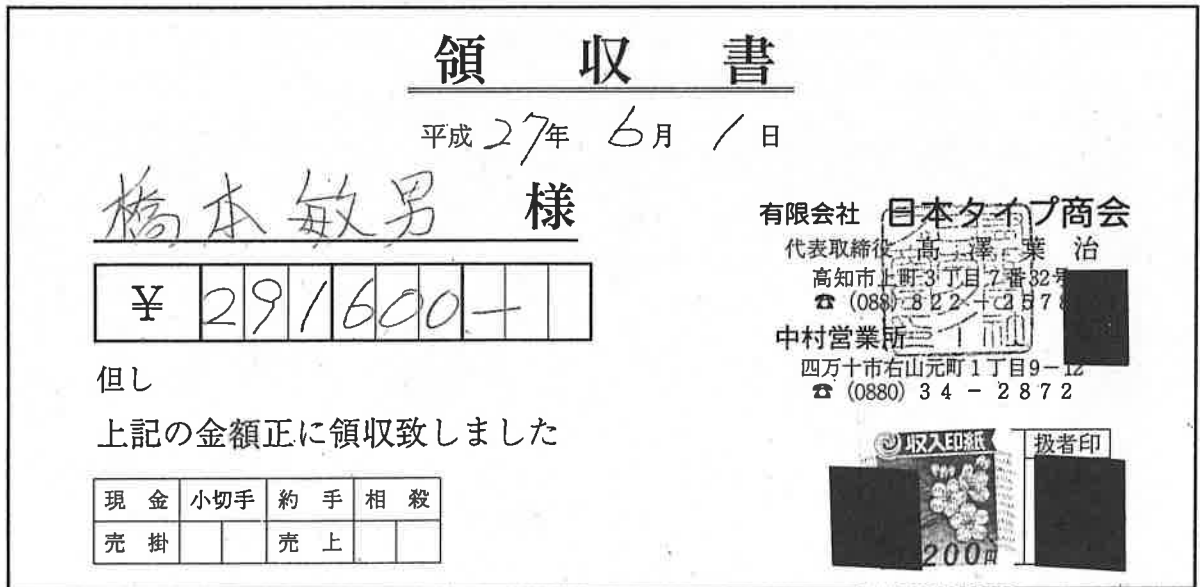 領収書
平成27年 6月 1日
橋本敏男 様
¥291600-
但し
上記の金額正に領収致しました
現金 小切手 約手 相殺
売掛 売上
有限会社 日本タイプ商会
代表取締役 髙澤葉治
高知市上町3丁目7番32号
☎ (088) 822-2578
中村営業所
四万十市右山元町1丁目9-12
☎ (0880) 34-2872
収入印紙
200円
扱者印